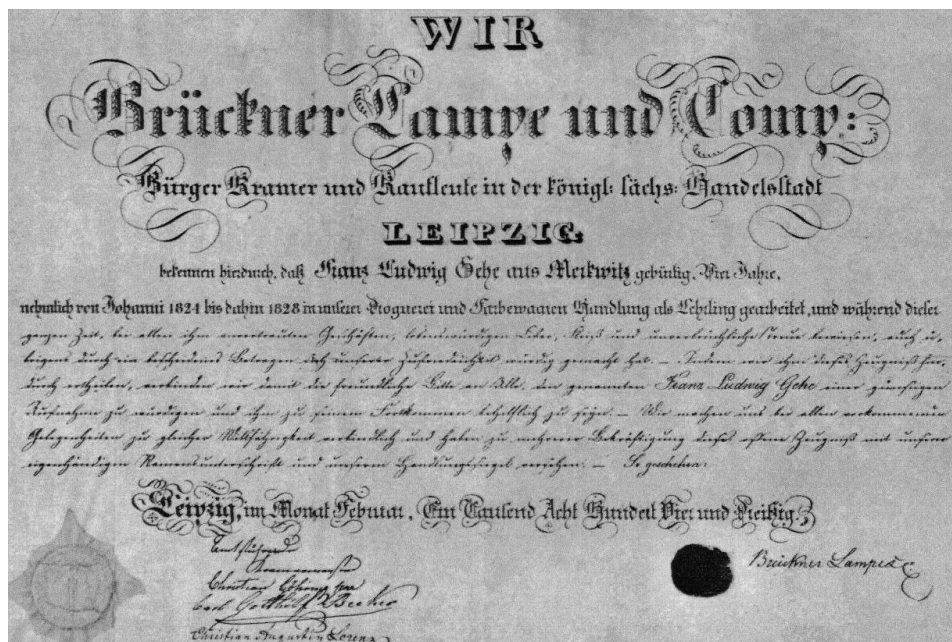 WIR
Brückner Lampe und Comp:
Bürger Kramer und Kaufleute in der königl: sächs: Handelsstadt
LEIPZIG.
bekennen hierdurch, daß Franz Ludwig Gehe aus Merkwitz gebürtig, Vier Jahre,
nehmlich von Johanni 1824 bis dahin 1828 in unserer Droguerei und Farbewaaren Handlung als Lehrling gearbeitet, und während dieser
ganzen Zeit, bei allen ihm anvertrauten Geschäften, lobenswürdigen Eifer, Fleiß und unverbrüchliche Treue bewiesen, auch ü-
brigens durch ein bescheidenes Betragen sich unserer Zufriedenheit würdig gemacht hat. — Indem wir ihm dieses Zeugniß hier-
durch ertheilen, verbinden wir damit die freundliche Bitte an Alle, den genannten Franz Ludwig Gehe einer günstigen
Aufnahme zu würdigen und ihm zu seinem Fortkommen behülflich zu seyn. — Wir machen uns bei allen vorkommenden
Gelegenheiten zu gleicher Willfährigkeit verbindlich und haben zu mehrerer Bekräftigung dieses Zeugniß mit unserer
eigenhändigen Namensunterschrift und unserem Handlungssiegel versehen. — So geschehen:
Leipzig, im Monat Februar, Ein Tausend Acht Hundert Vier und Dreißig.
Brückner Lampe & C
Christian
Carl Gotthilf Becker
Christian Augustin Lorenz